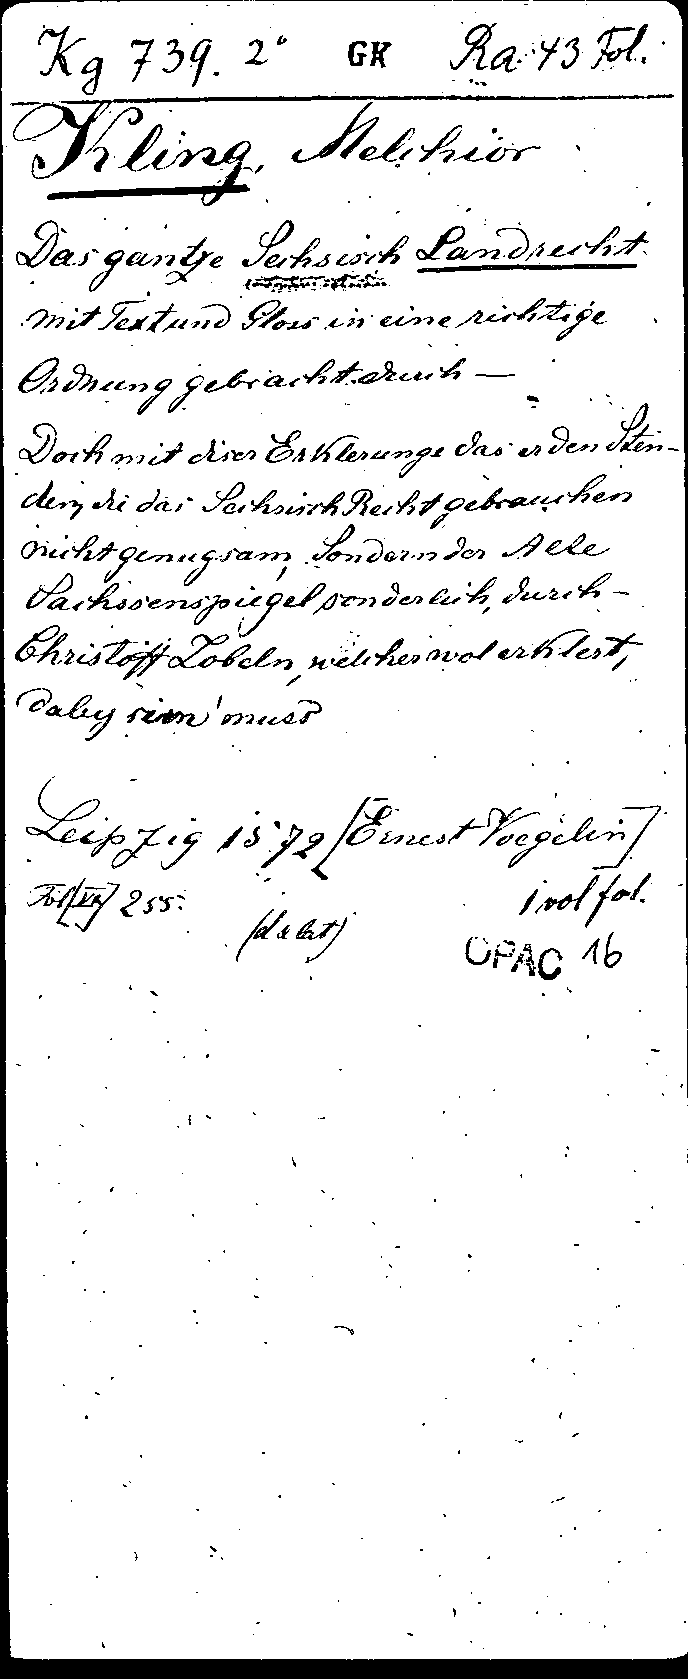 Kg 739. 2° GK Ra 43 Fol.
Kling, Melchior
Das gantze Sechsisch Landrecht
mit Text und Gloss in eine richtige
Ordnung gebracht durch —
Doch mit diser Erklerunge das er den Sten-
den, die das Sechsisch Recht gebrauchen
nicht genugsam, Sondern der Alte
Sachssenspiegel sonderlich, durch -
Christoff Zobeln, welcher wol erklert,
daby muss
Leipzig 1572 [Ernest Voegelin]
Fol 255. 1 vol fol.
OPAC 16